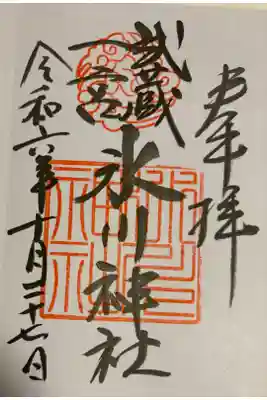 奉拝
武蔵
一宮
氷川神社
令和六年十月二十七日